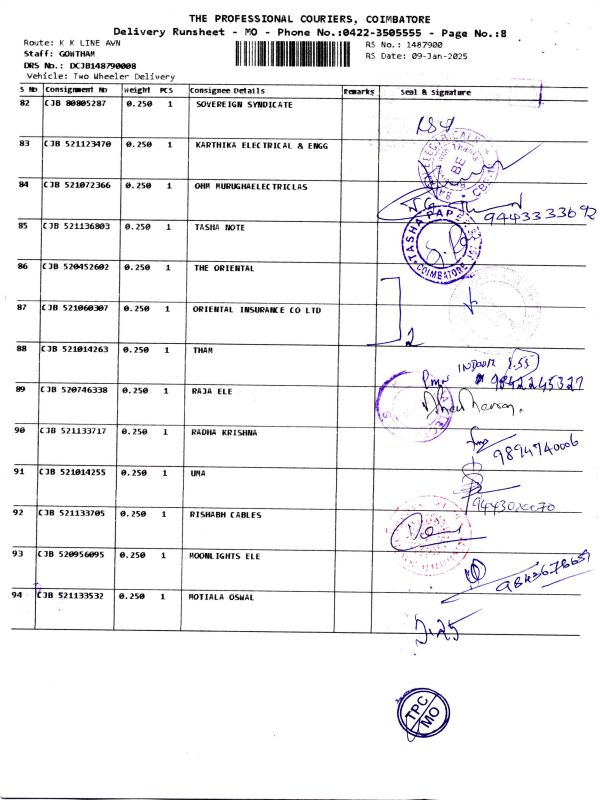 THE PROFESSIONAL COURIERS, COIMBATORE
Delivery Runsheet - MO - Phone No.:0422-3505555 - Page No.:8
Route: K K LINE AVN
RS No.: 1487900
Staff: GOWTHAM
RS Date: 09-Jan-2025
DRS No.: DCJB148790008
Vehicle: Two Wheeler Delivery
S No Consignment No Weight PCS Consignee Details Remarks Seal & Signature
82 CJB 80805287 0.250 1 SOVEREIGN SYNDICATE
83 CJB 521123470 0.250 1 KARTHIKA ELECTRICAL & ENGG
84 CJB 521072366 0.250 1 OHM MURUGHAELECTRICLAS
9443333692
85 CJB 521136803 0.250 1 TASHA NOTE
TASHA PAPER
COIMBATORE
86 CJB 520452602 0.250 1 THE ORIENTAL
87 CJB 521060307 0.250 1 ORIENTAL INSURANCE CO LTD
2
88 CJB 521014263 0.250 1 THAM
9842245327
89 CJB 520746338 0.250 1 RAJA ELE
90 CJB 521133717 0.250 1 RADHA KRISHNA
9894740006
91 CJB 521014255 0.250 1 UMA
92 CJB 521133705 0.250 1 RISHABH CABLES
93 CJB 520956095 0.250 1 MOONLIGHTS ELE
94 CJB 521133532 0.250 1 MOTIALA OSWAL
TPC
MO